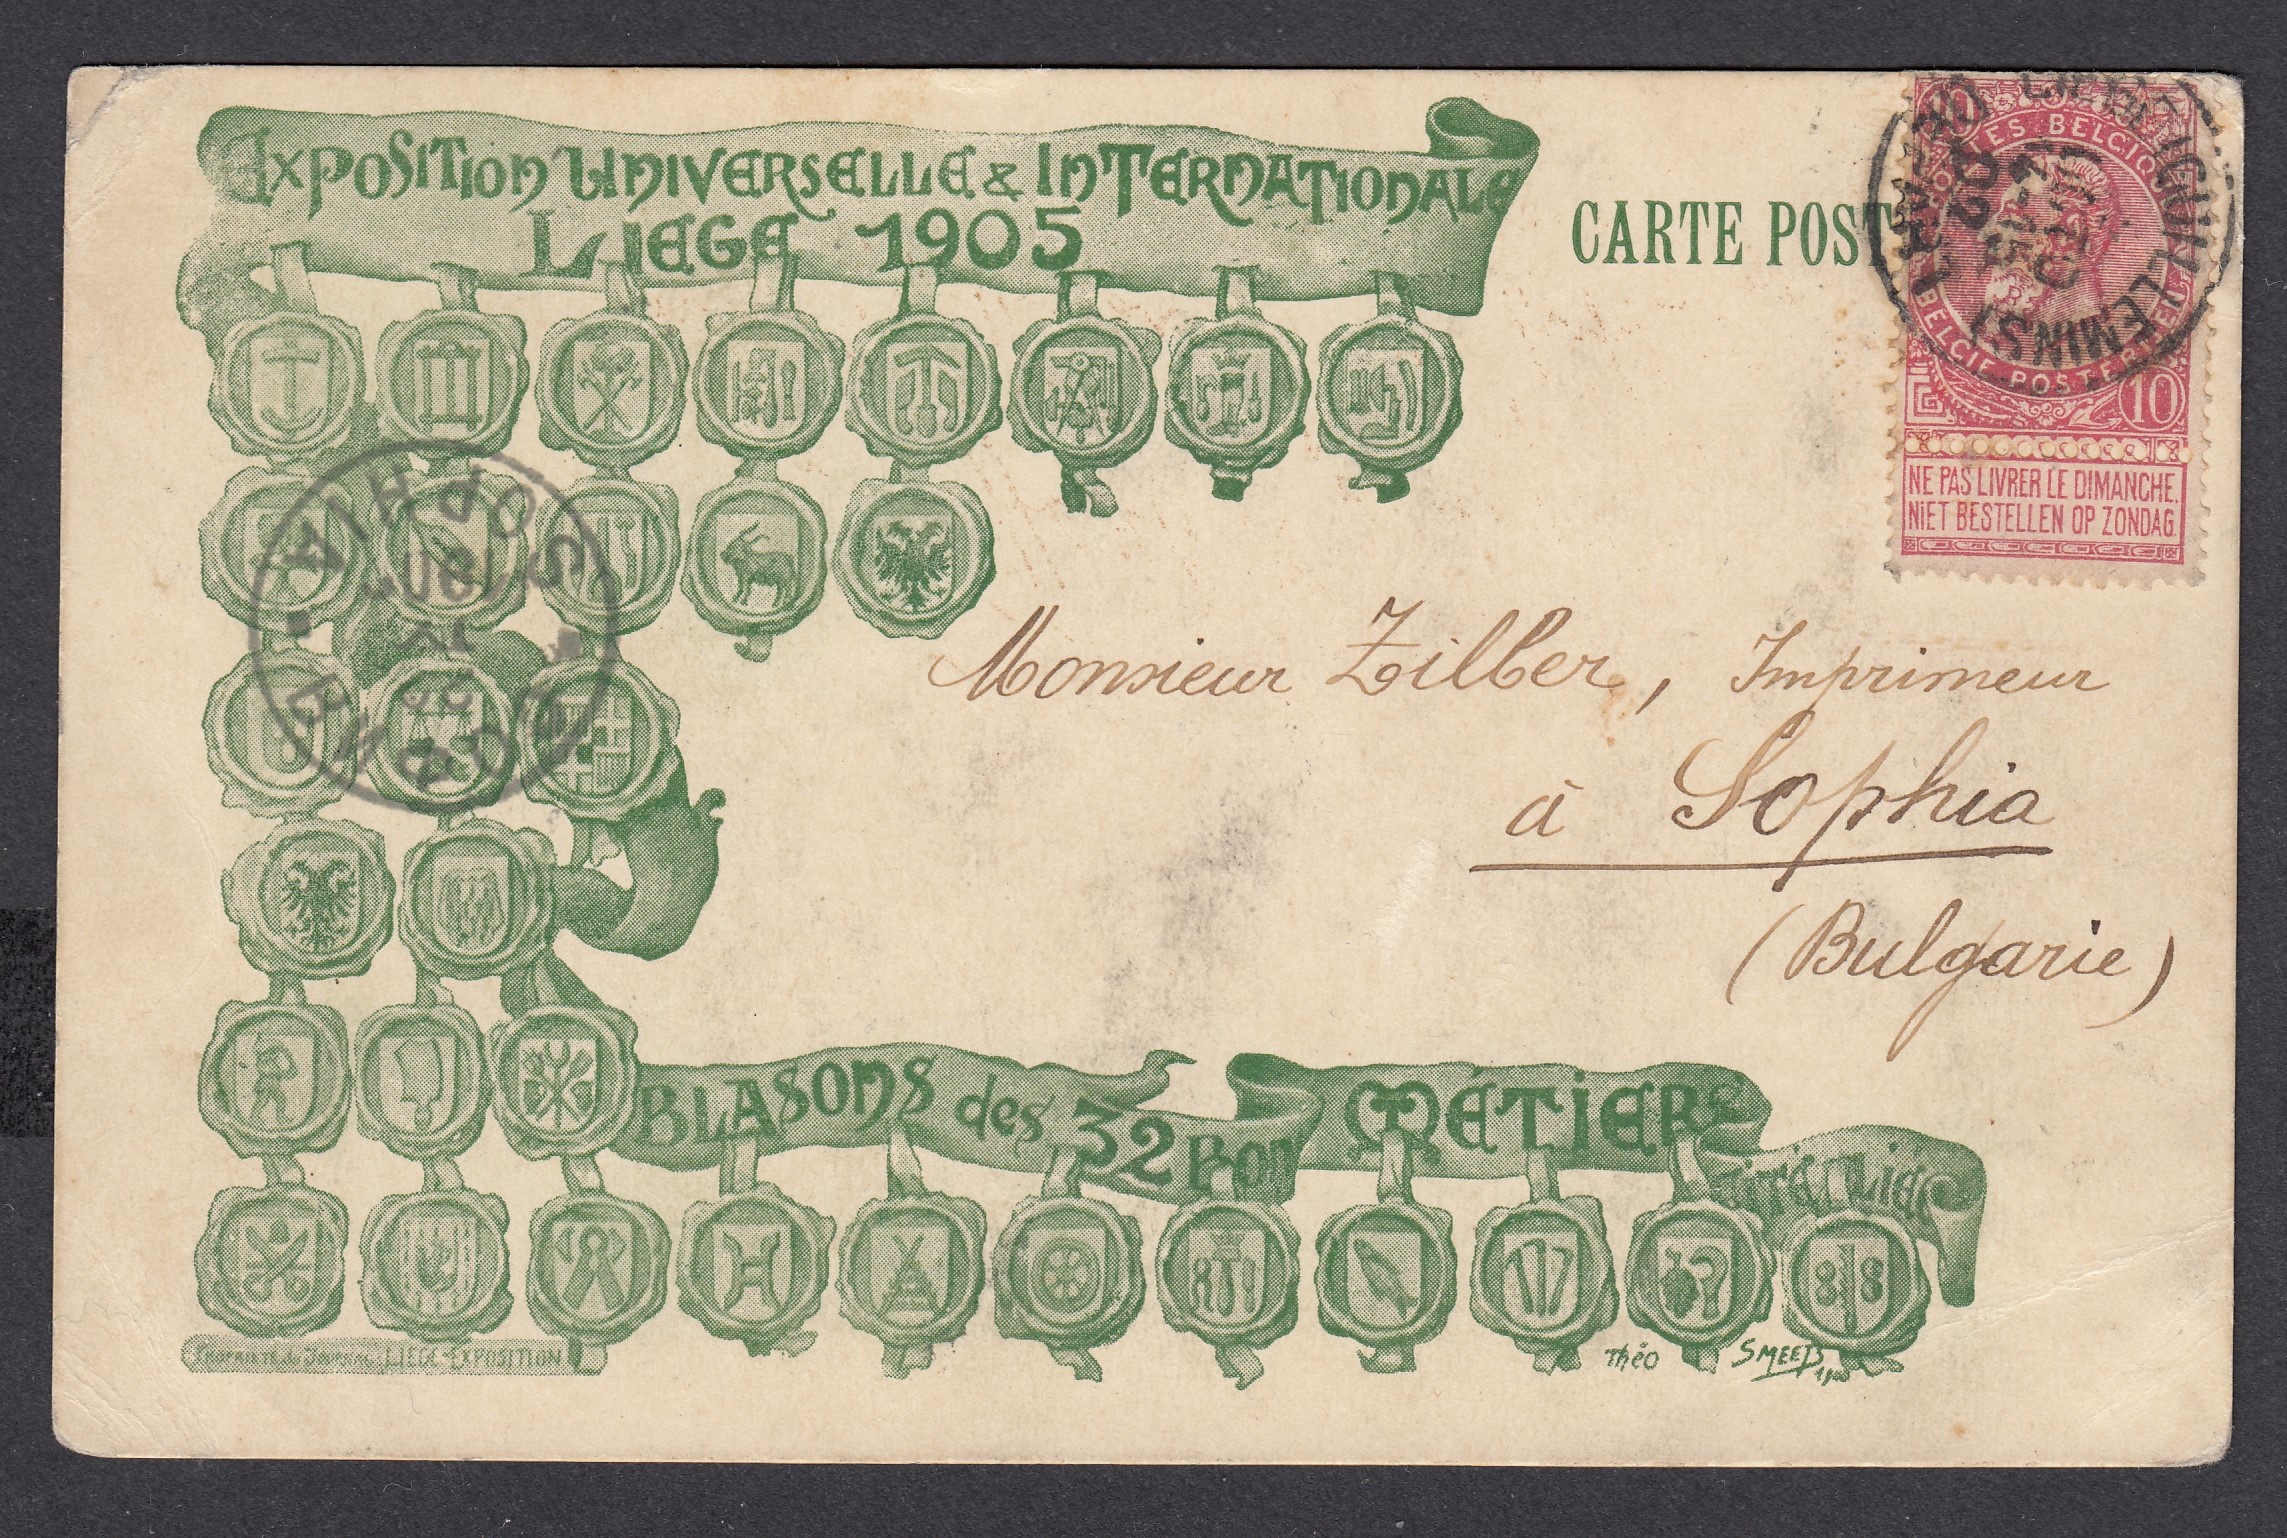 Exposition Universelle & Internationale
Liege 1905
CARTE POST
POSTES BELGIQUE
BELGIE POSTERIJEN
10
NE PAS LIVRER LE DIMANCHE.
NIET BESTELLEN OP ZONDAG.
SOPHIA
Monsieur Zilber, Imprimeur
à Sophia
(Bulgarie)
BLASONS des 32 Bon MÉTIERS
Cité Liége
Propriété du Journal LIEGE-EXPOSITION
Théo SMEETS